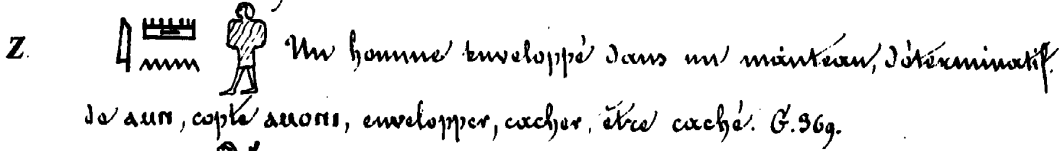 Z. 𓇋𓏠𓈖 Un homme enveloppé dans un manteau, déterminatif.
de amn, copte amoni, envelopper, cacher, être caché. G. 369.